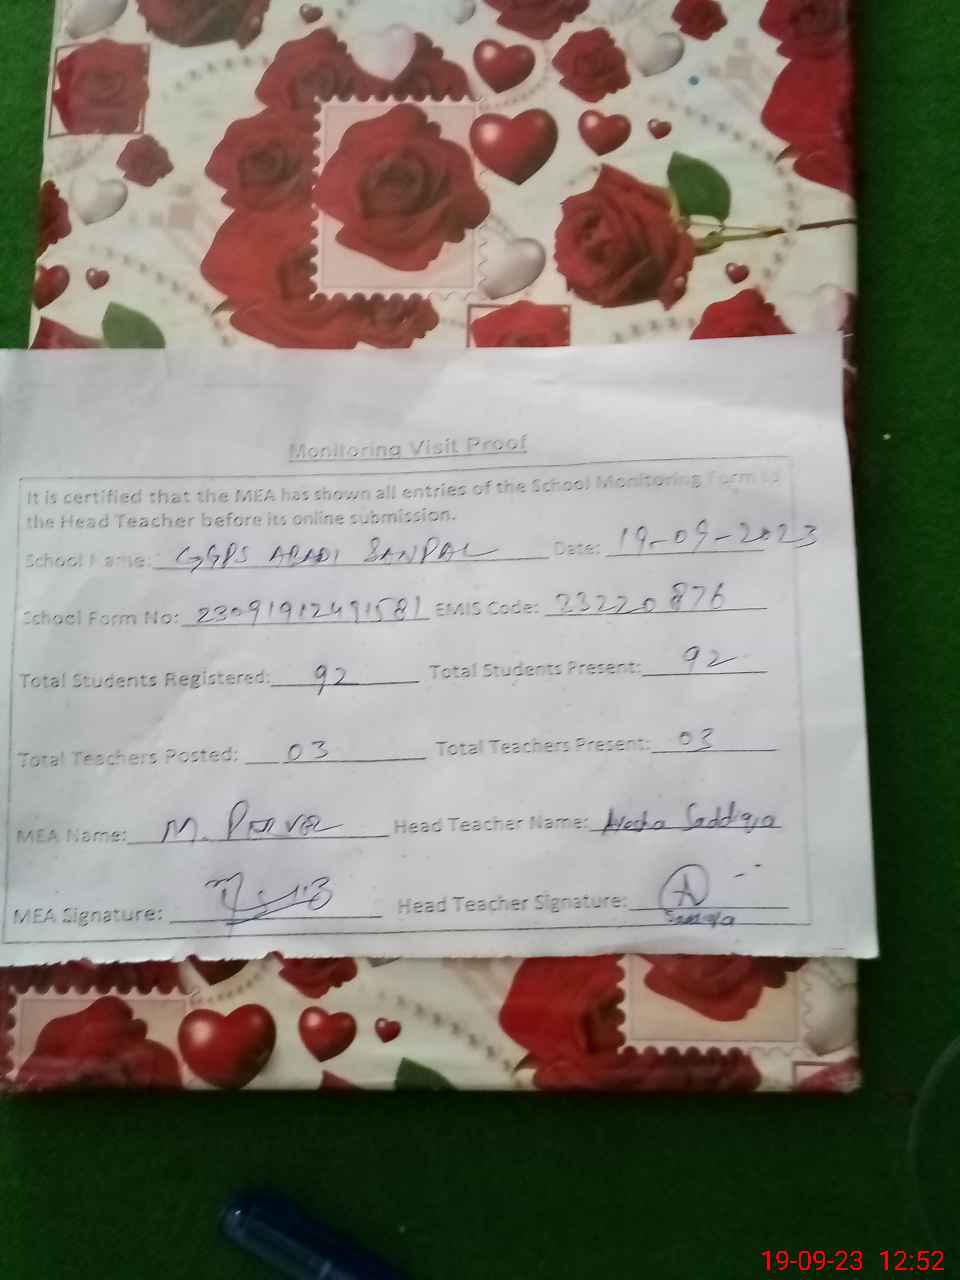 Monitoring Visit Proof
It is certified that the MEA has shown all entries of the School Monitoring Form to
the Head Teacher before its online submission.
School Name: GGPS ABADI SANPAL Date: 19-09-2023
School Form No: 23091912491581 EMIS Code: 23220876
Total Students Registered: 92 Total Students Present: 92
Total Teachers Posted: 03 Total Teachers Present: 03
MEA Name: M. Head Teacher Name: Ayesha Saddiqa
MEA Signature: Head Teacher Signature:
19-09-23 12:52